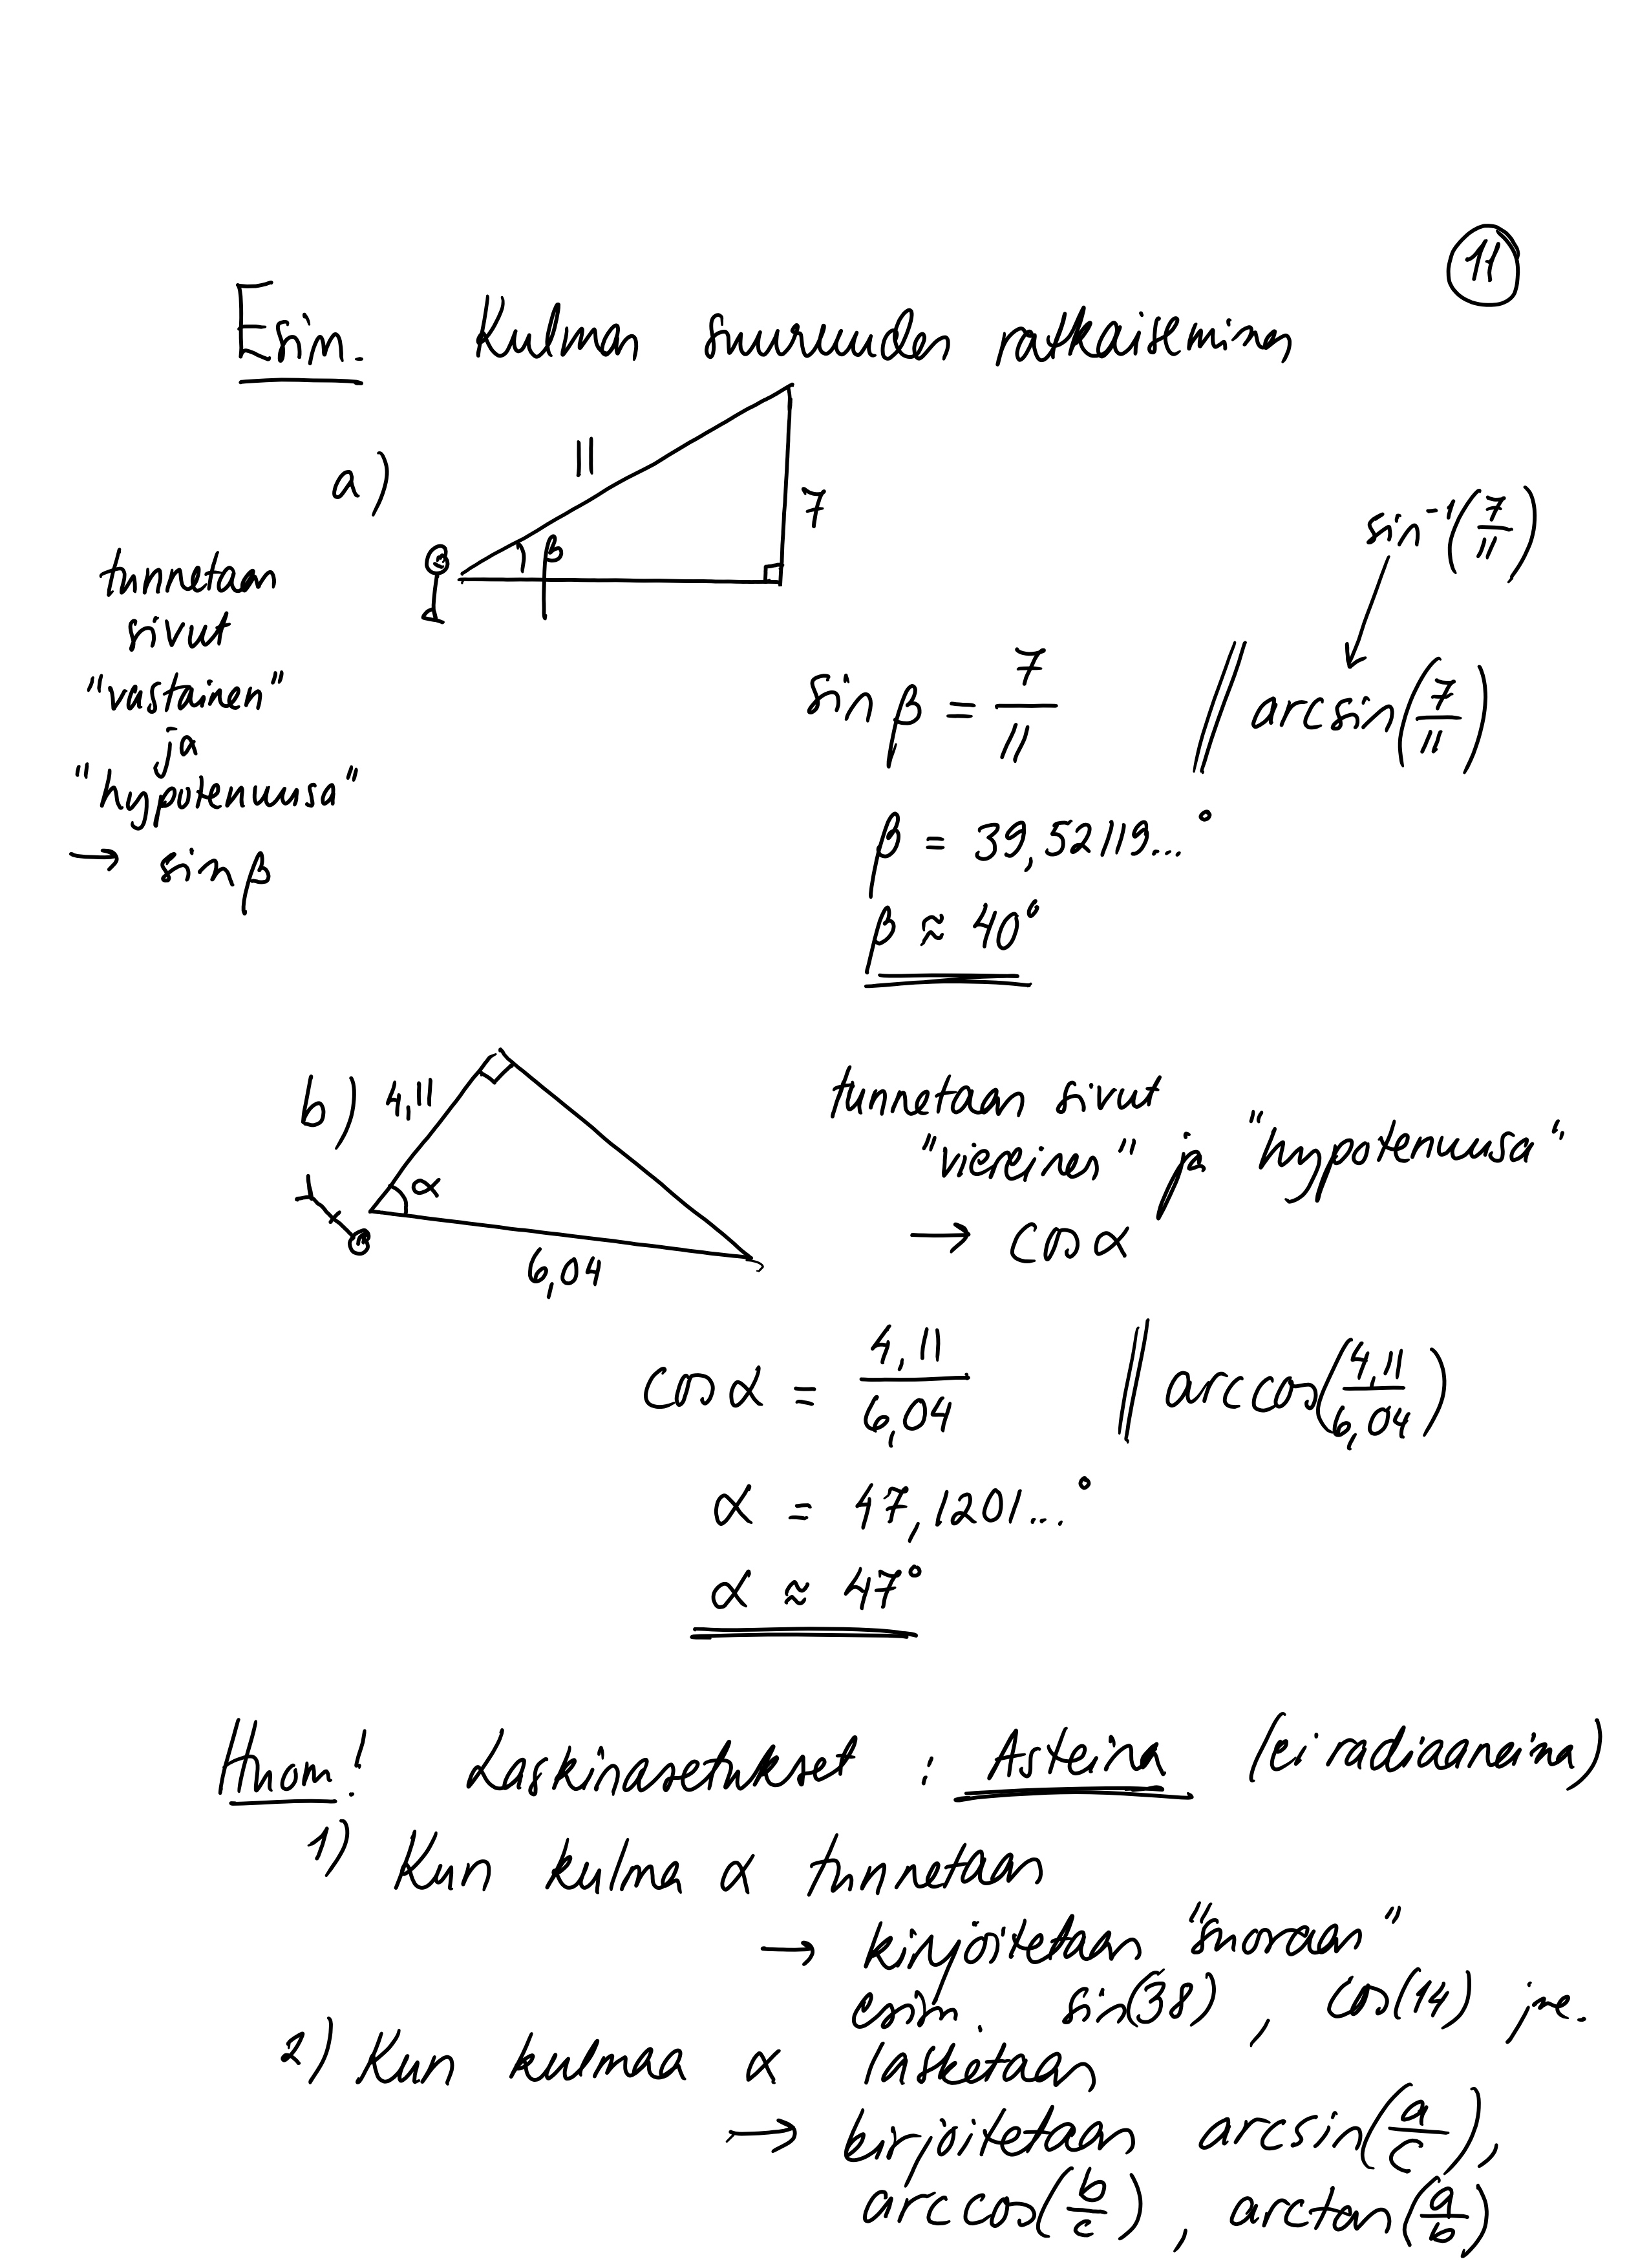 11
Esim. Kulman suuruuden ratkaiseminen
a)
11
7
β
tunnetaan
sivut
"vastainen"
ja
"hypotenuusa"
→ sin β
sin⁻¹(7/11)
sin β = 7/11 || arcsin(7/11)
β = 39,52119...°
β ≈ 40°
b)
4,11
α
6,04
tunnetaan sivut
"viereinen" ja "hypotenuusa"
→ cos α
cos α = 4,11/6,04 || arccos(4,11/6,04)
α = 47,1201...°
α ≈ 47°
Huom! Laskinasetukset : Asteina (ei radiaaneina)
1) Kun kulma α tunnetaan
→ kirjoitetaan "suoraan"
esim. sin(38), cos(14) jne.
2) Kun kulmaa α lasketaan
→ kirjoitetaan arcsin(a/c),
arccos(b/c), arctan(a/b)